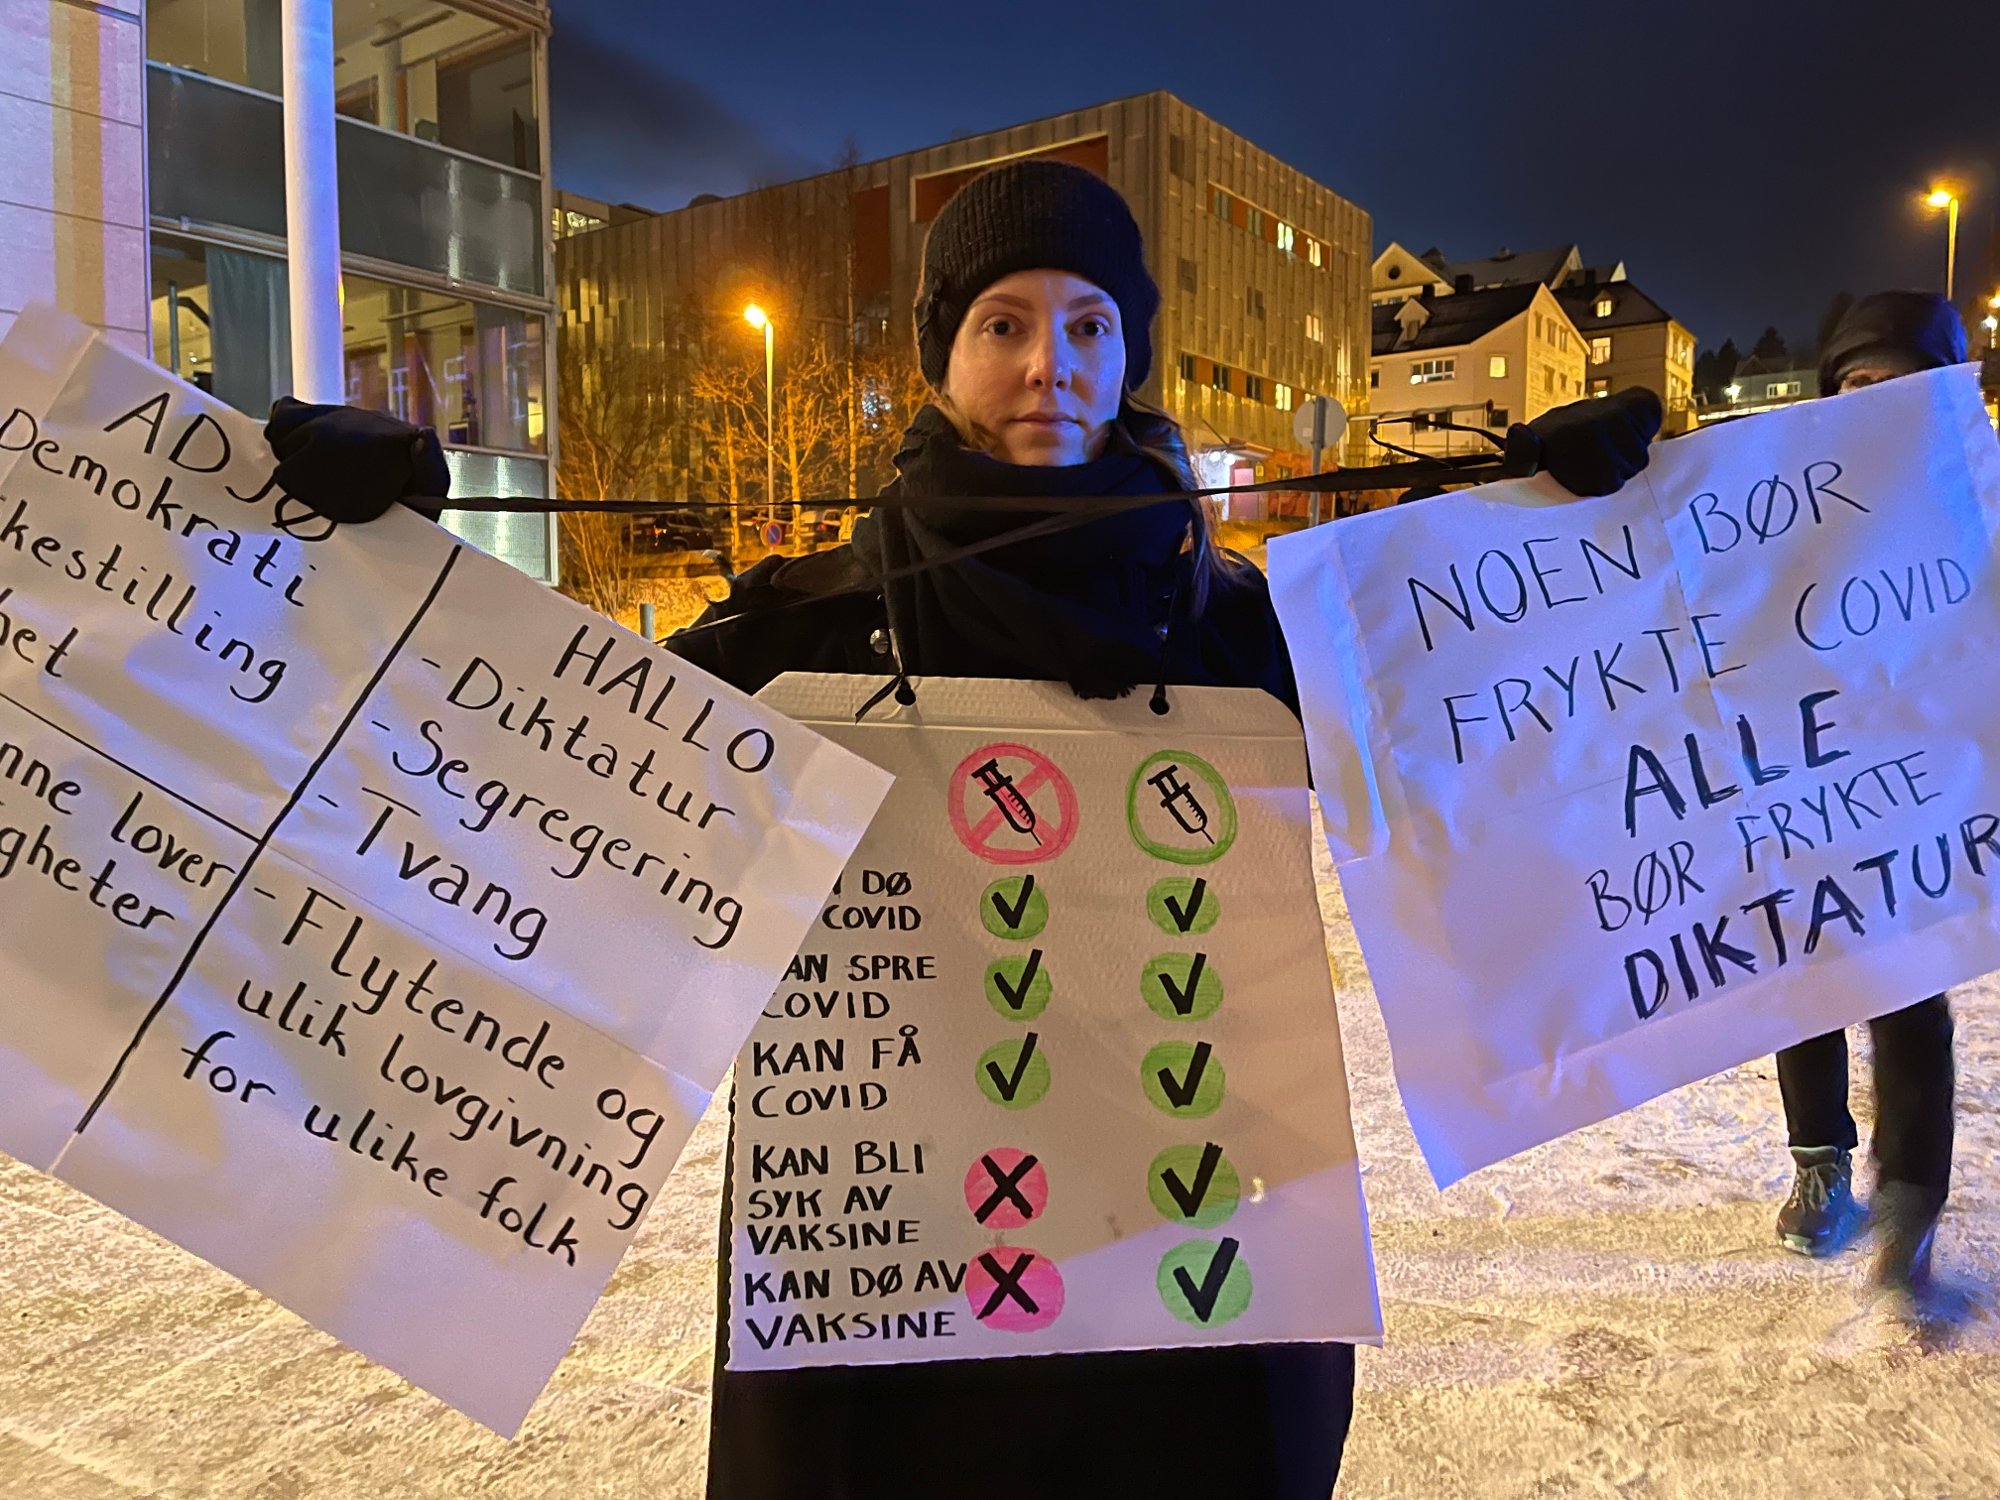 ADJØ
Demokrati
HALLO
- Diktatur
- Segregering
- Tvang
lover
- Flytende og
ulik lovgivning
for ulike folk
DØ
COVID
SPRE
COVID
KAN FÅ
COVID
KAN BLI
SYK AV
VAKSINE
KAN DØ AV
VAKSINE
NOEN BØR
FRYKTE COVID
ALLE
BØR FRYKTE
DIKTATUR